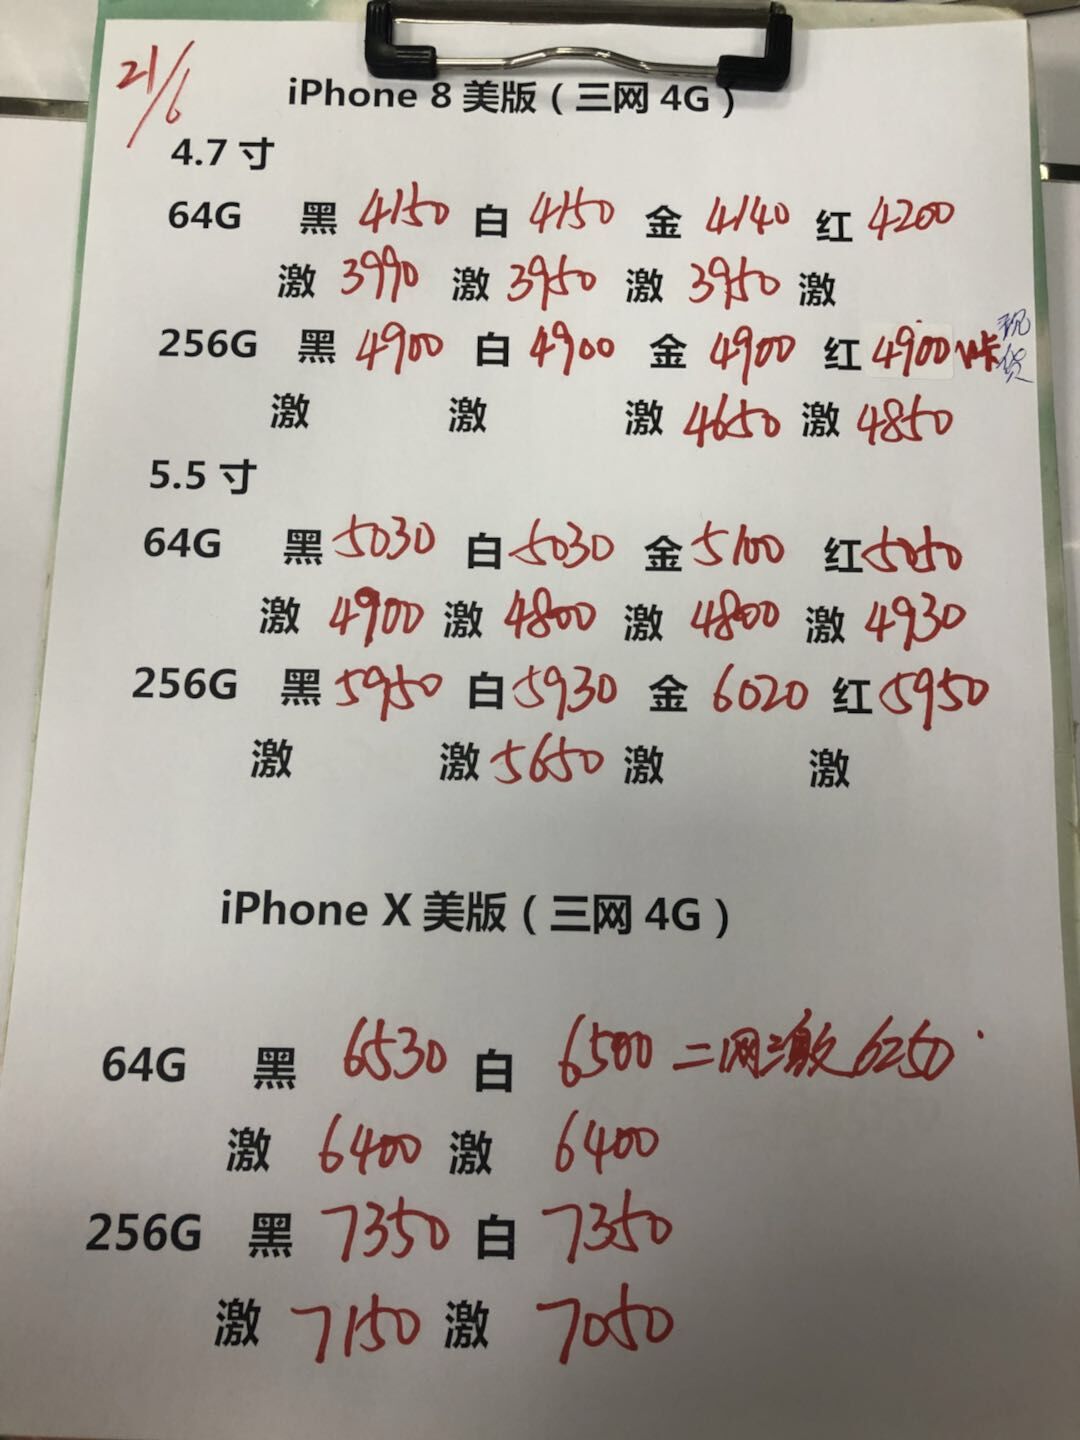 21/6
iPhone 8 美版（三网 4G）
4.7 寸
64G 黑 4150 白 4150 金 4140 红 4200
激 3990 激 3950 激 3950 激
256G 黑 4900 白 4900 金 4900 红 4900 卡 现货
激 激 激 4650 激 4850
5.5 寸
64G 黑 5030 白 5030 金 5100 红 5050
激 4900 激 4800 激 4800 激 4930
256G 黑 5950 白 5930 金 6020 红 5950
激 激 5650 激 激
iPhone X 美版（三网 4G）
64G 黑 6530 白 6500 二网激 6250
激 6400 激 6400
256G 黑 7350 白 7350
激 7150 激 7050